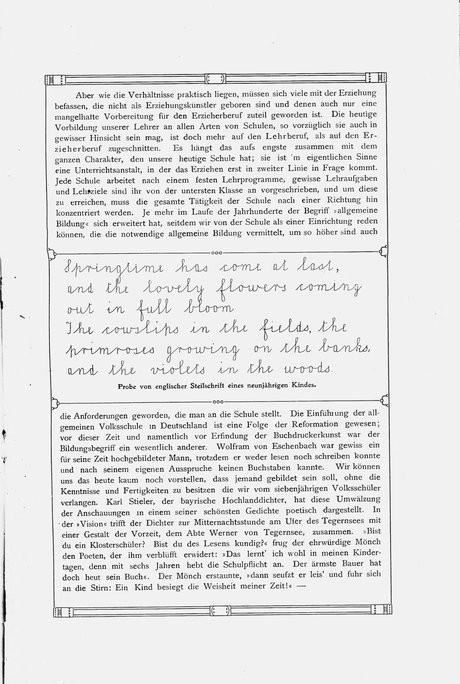 Aber wie die Verhältnisse praktisch liegen, müssen sich viele mit der Erziehung
befassen, die nicht als Erziehungskünstler geboren sind und denen auch nur eine
mangelhafte Vorbereitung für den Erzieherberuf zuteil geworden ist. Die heutige
Vorbildung unserer Lehrer an allen Arten von Schulen, so vorzüglich sie auch in
gewisser Hinsicht sein mag, ist doch mehr auf den Lehrberuf, als auf den Er-
zieherberuf zugeschnitten. Es hängt das aufs engste zusammen mit dem
ganzen Charakter, den unsere heutige Schule hat; sie ist 'm eigentlichen Sinne
eine Unterrichtsanstalt, in der das Erziehen erst in zweiter Linie in Frage kommt.
Jede Schule arbeitet nach einem festen Lehrprogramme, gewisse Lehraufgaben
und Lehrziele sind ihr von der untersten Klasse an vorgeschrieben, und um diese
zu erreichen, muss die gesamte Tätigkeit der Schule nach einer Richtung hin
konzentriert werden. Je mehr im Laufe der Jahrhunderte der Begriff »allgemeine
Bildung« sich erweitert hat, seitdem wir von der Schule als einer Einrichtung reden
können, die die notwendige allgemeine Bildung vermittelt, um so höher sind auch
Springtime has come at last,
and the lovely flowers coming
out in full bloom
The cowslips in the fields, the
primroses growing on the banks,
and the violets in the woods.
Probe von englischer Steilschrift eines neunjährigen Kindes.
die Anforderungen geworden, die man an die Schule stellt. Die Einführung der all-
gemeinen Volksschule in Deutschland ist eine Folge der Reformation gewesen;
vor dieser Zeit und namentlich vor Erfindung der Buchdruckerkunst war der
Bildungsbegriff ein wesentlich anderer. Wolfram von Eschenbach war gewiss ein
für seine Zeit hochgebildeter Mann, trotzdem er weder lesen noch schreiben konnte
und nach seinem eigenen Ausspruche keinen Buchstaben kannte. Wir können
uns das heute kaum noch vorstellen, dass jemand gebildet sein soll, ohne die
Kenntnisse und Fertigkeiten zu besitzen die wir vom siebenjährigen Volksschüler
verlangen. Karl Stieler, der bayrische Hochlanddichter, hat diese Umwälzung
der Anschauungen in einem seiner schönsten Gedichte poetisch dargestellt. In
der »Vision« trifft der Dichter zur Mitternachtsstunde am Ufer des Tegernsees mit
einer Gestalt der Vorzeit, dem Abte Werner von Tegernsee, zusammen. »Bist
du ein Klosterschüler? Bist du des Lesens kundig?« frug der ehrwürdige Mönch
den Poeten, der ihm verblüfft erwidert: »Das lernt' ich wohl in meinen Kinder-
tagen, denn mit sechs Jahren hebt die Schulpflicht an. Der ärmste Bauer hat
doch heut sein Buch«. Der Mönch erstaunte, »dann seufzt er leis' und fuhr sich
an die Stirn: Ein Kind besiegt die Weisheit meiner Zeit!« —